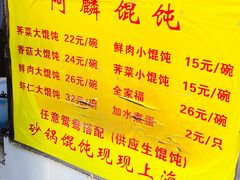 阿麟馄饨
荠菜大馄饨 22元/碗
香菇大馄饨 24元/碗
鲜肉大馄饨 26元/碗
虾仁大馄饨 32元/碗
鲜肉小馄饨 15元/碗
荠菜小馄饨 15元/碗
全家福 26元/碗
加水煮蛋 2元/只
任意鸳鸯搭配 (供应生馄饨)
砂锅馄饨现现上海